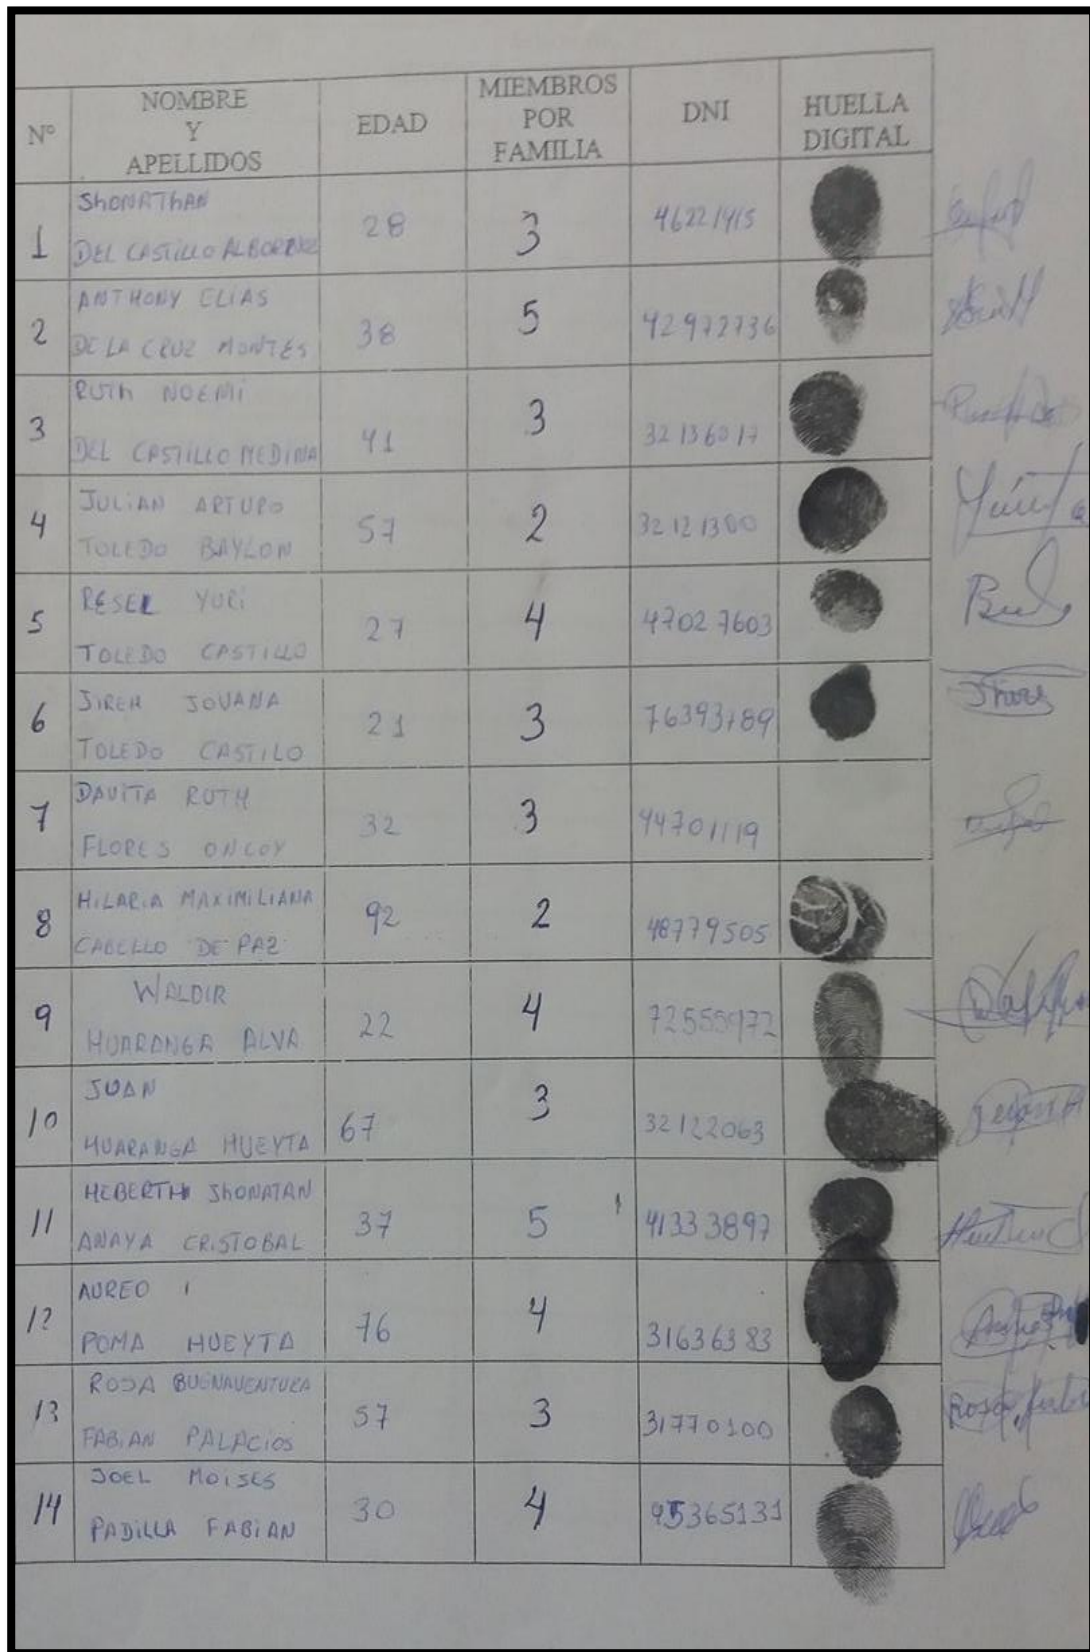 Nº
NOMBRE
Y
APELLIDOS
EDAD
MIEMBROS
POR
FAMILIA
DNI
HUELLA
DIGITAL
1
ShONAThAN
DEL CASTILLO
28
3
46221415
2
ANTHONY ELIAS
DE LA CRUZ MONTES
38
5
42972736
3
RUTh NOEMI
DEL CASTILLO MEDINA
41
3
32136017
4
JULIAN ARTURO
TOLEDO BAYLON
57
2
32121300
5
RESEL YURI
TOLEDO CASTILLO
27
4
47027603
6
JIREH JOVANA
TOLEDO CASTILO
21
3
76393789
7
DAVITA RUTH
FLORES ONCOY
32
3
44701119
8
HILARIA MAXIMILIANA
CABELLO DE PAZ
92
2
48779505
9
WALDIR
HUARANGA ALVA
22
4
72555972
10
JUAN
HUARANGA HUEYTA
67
3
32122063
11
HEBERTH JhONATAN
ANAYA CRISTOBAL
37
5
41333897
12
AUREO
POMA HUEYTA
76
4
31636383
13
ROSA BUENAVENTURA
FABIAN PALACIOS
57
3
31770100
Rosa
14
JOEL MOISES
PADILLA FABIAN
30
4
45365131